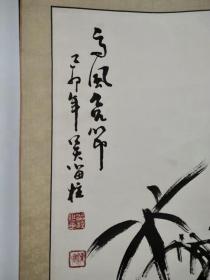 高风亮节
己卯年吴富柱